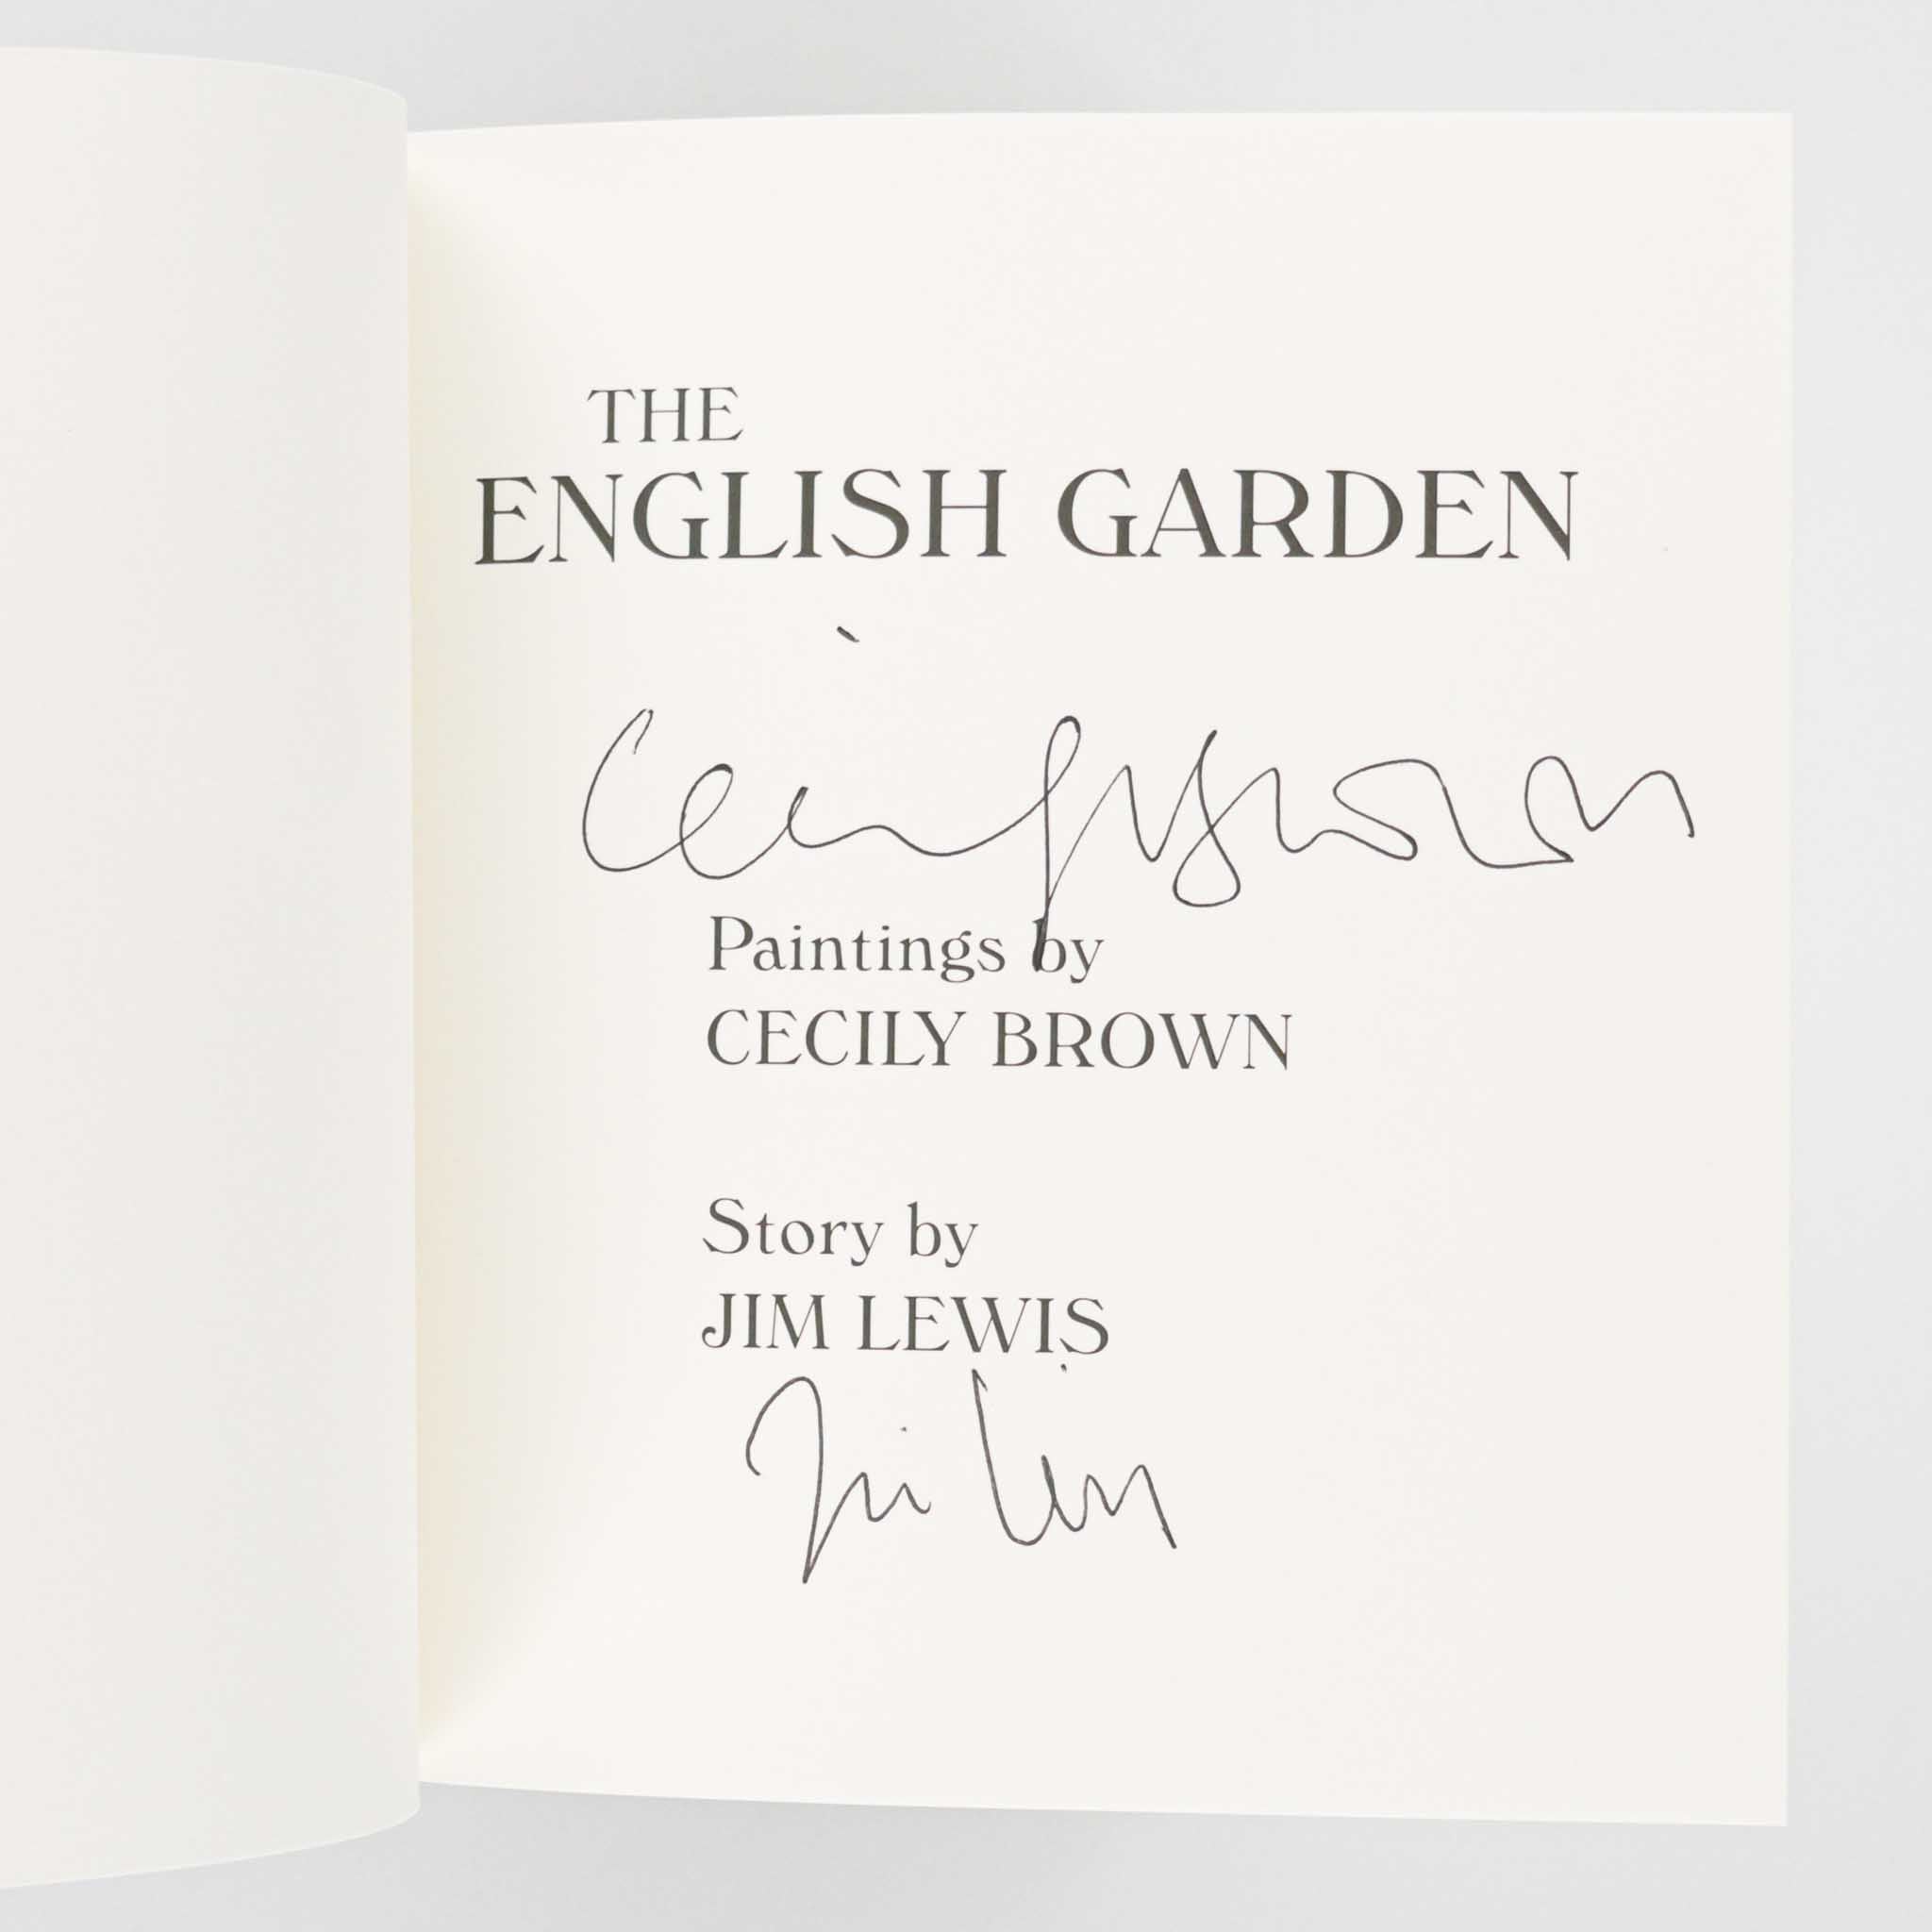 THE
ENGLISH GARDEN
Cecily Brown
Paintings by
CECILY BROWN
Story by
JIM LEWIS
Jim Lewis